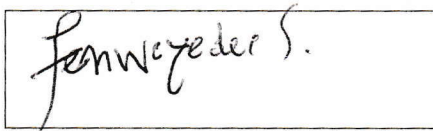 Fenweyeder S.